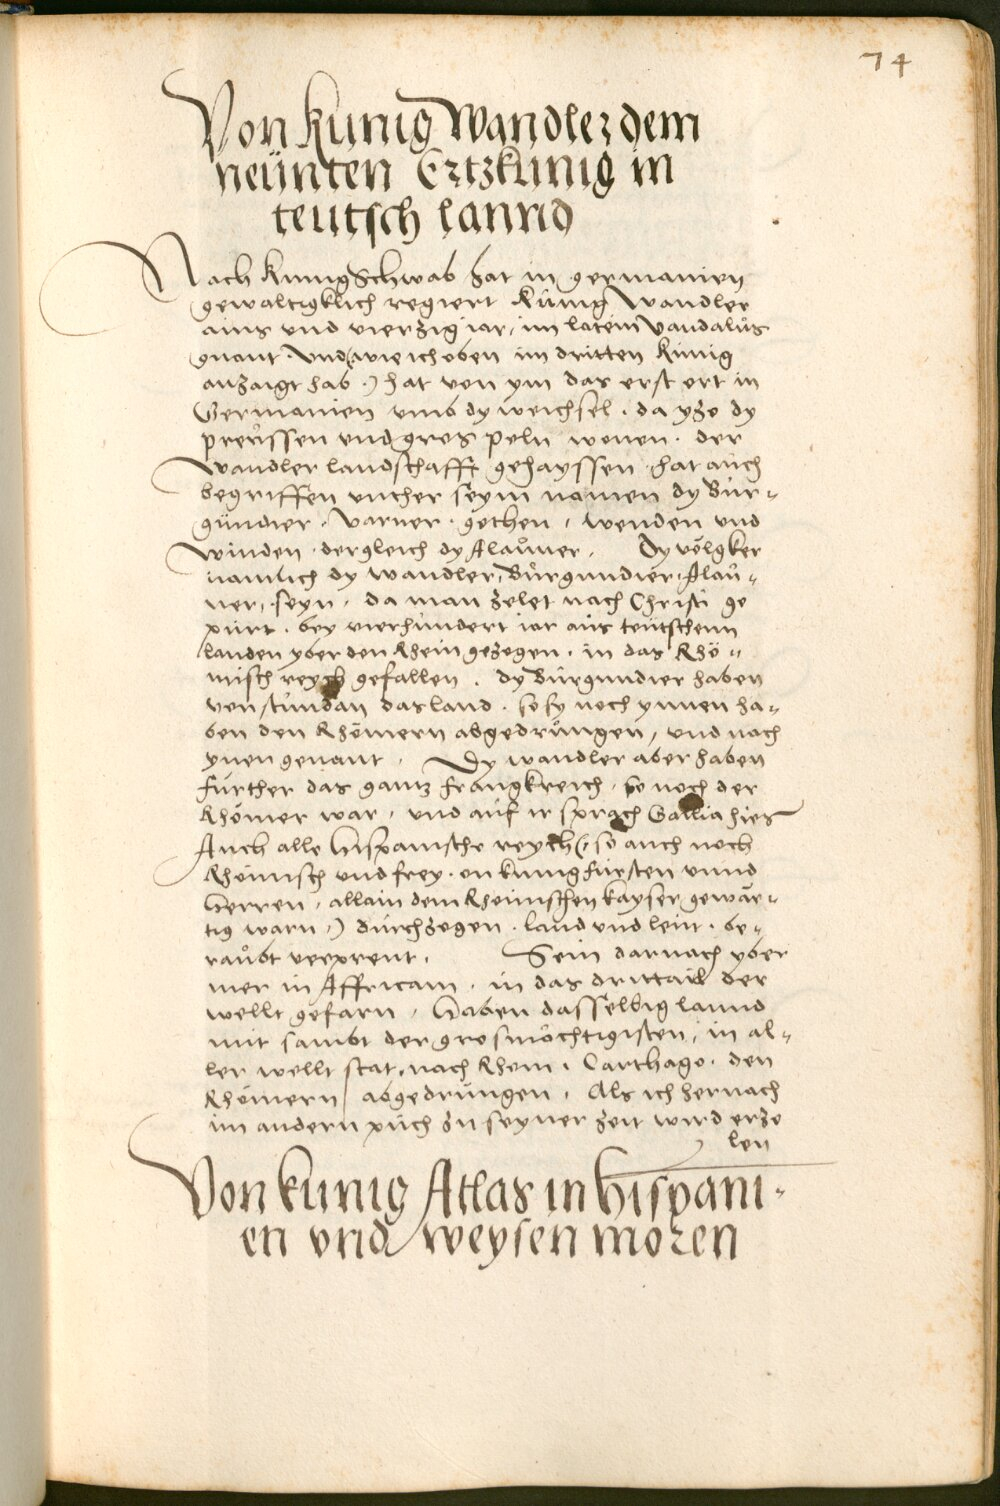 74
Von Kunig Wandler dem
neünten Ertzkunig in
teutsch lannd
Nach Kunig Schwab hat in germanien
gewaltigklich regiert Kunig Wandler
ains vnd vierzig iar, im latein Vandalůs
gnant. Vnd (wie ich oben im dritten Kunig
anzaigt hab.) hat von ym das erst ort in
Germanien vmb dy weichsel. da yzo dy
preůssen vnd gros poln wonen. der
Wandler landschafft gehayssen. hat auch
begriffen vnther seym namen dy Bur-
gundier. Varner. gothen, wenden vnd
Winden. dergleich dy Alaůner. Dy völgker
namlich dy wandler, Bůrgundier, Alaů-
ner, seyn, da man zelet nach Christi ge
purt. bey vierhundert iar aus teutschenn
landen yber den Rhein gezogen. in das Rhö-
misch reych gefallen. dy Burgundier haben
von stundan das land. so sy noch ynnen ha-
ben den Rhömern abgedrůngen, vnd nach
ynen genant. Dy wandler aber haben
fürther das gantz frangkreich, so noch der
Rhömer war, vnd auf ir sprach Gallia hies
Auch alle hispanische reych (so auch noch
Rhömisch vnd frey. on kunig fürsten vnnd
Herren, allain dem Rhomischen kayser gewär-
tig warn,) durchzogen. land vnd leut. be-
raůbt verprent. Sein darnach yber
mer in Affricam, in das drittail der
wellt gefarn, Haben dasselbig lannd
mit sambt der grosmöchtigisten, in al-
ler wellt stat, nach Rhom, Carthago. den
Rhömern abgedrungen, Als ich hernach
im andern puch zu seyner zeit wird erze
len
Von kunig Atlas in hispani-
en vnd weysen moren